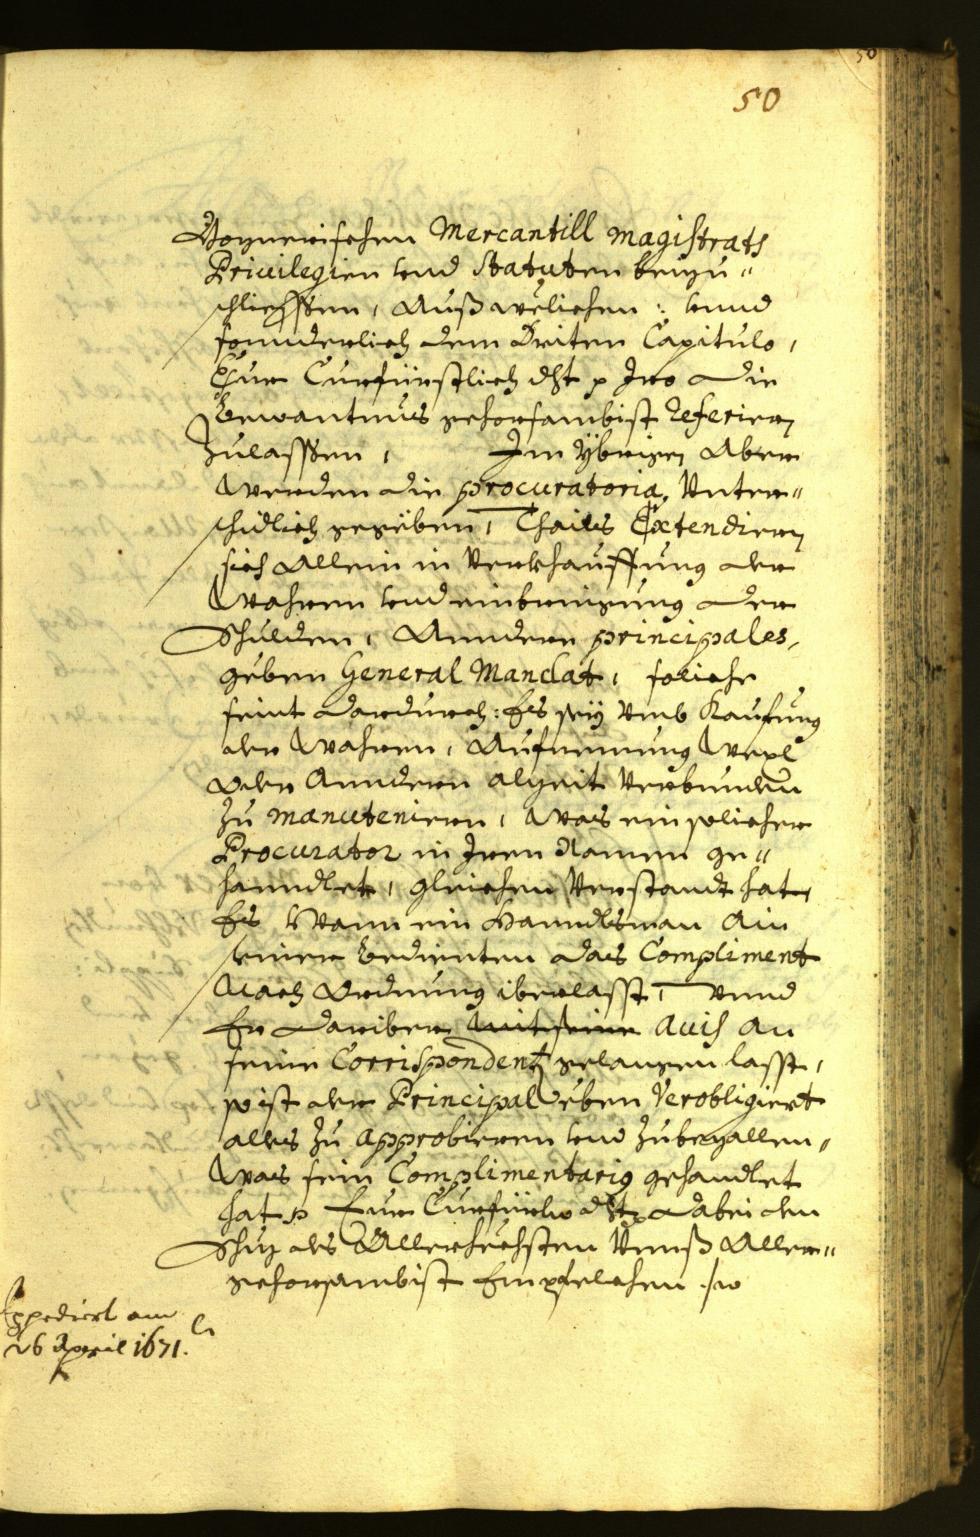 50
50
Boznerischen Mercantill Magistrats
Privilegien vnd Statuten beyzu"
schliessen, Auß weliehen: vnnd
sonnderlich dem Driten Capitulo,
Eur Curfürstlich dht p Iro die
bewantnus gehorsambist referirn
zulassen, Im ÿbrigen Aber
werden die procuratoria, Unter"
schidlich gegëben, Thails Extendiern
sich Allein in Verkhauffung der
Wahren vnd einbringung der
Schulden, Anndere principales,
geben General Mandat, soliche
seint dardurch: Es seÿ Vmb Kaufung
der Wahren, Aufnemung Wexl
oder Annderen alzeit Verbunden
zu manuteniern, was ein solicher
Procurator in Iren Namen ge"
hanndlet, gleichen Verstandt hat,
Es Wann ein Hanndlsman Ain
seiner bedienten das Compliment
Nach Ordnung iberlasst, vnnd
Er dariber mit seine avis An
seine Corrispondenti gelangen lasst,
so ist der Principal ëben Verobligiert
alles zu approbieren vnd zubezallen,
Was sein Complimentarig gehandlet
hat p Eur Curfürtl dht dabei den
Schuz des Allerhechsten Vnnß Aller"
gehorsambist Empfelehen
Expediert am
26 April 1671.